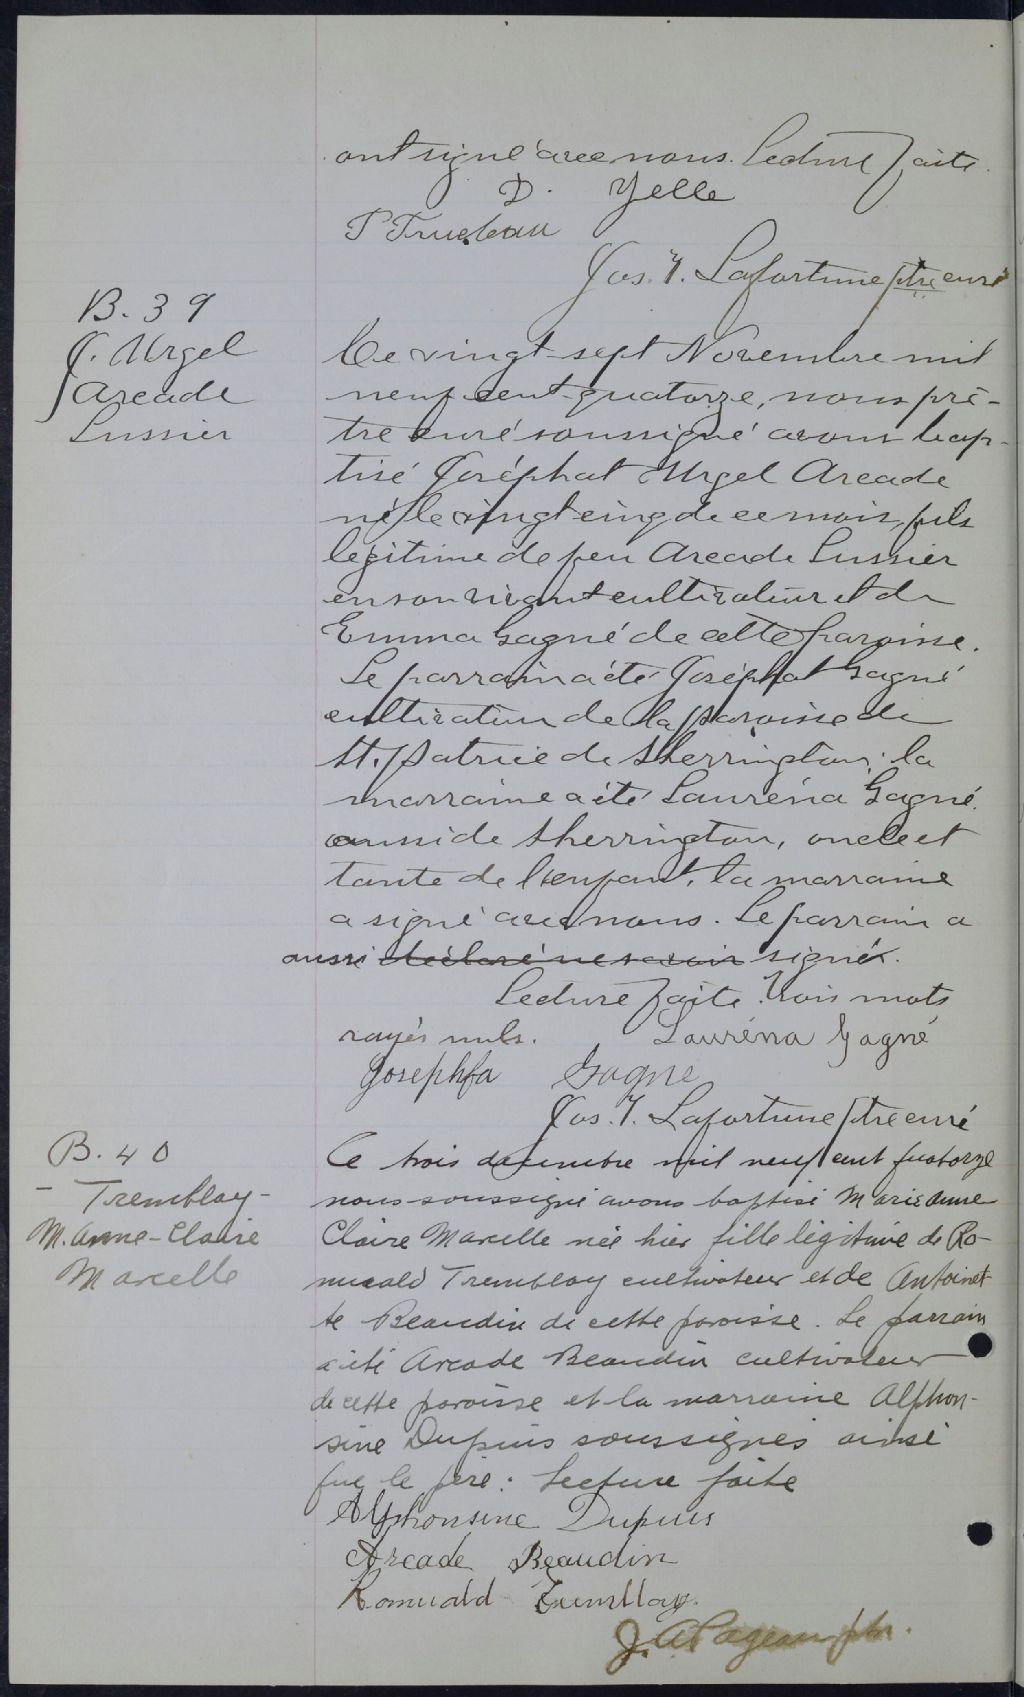 ont signé avec nous. Lecture faite.
D. Yelle
P Trudeau
Jos. T. Lafortune ptre curé
B. 39
J. Urgel
Arcade
Lussier
Ce vingt-sept Novembre mil
neuf cent-quatorze, nous prê-
tre curé soussigné avons bap-
tisé Joséphat Urgel Arcade
né le vingt cinq de ce mois, fils
légitime de feu Arcade Lussier
en son vivant cultivateur et de
Emma Gagné de cette paroisse.
Le parrain a été Joséphat Gagné
cultivateur de la paroisse de
St. Patrice de Sherrington; la
marraine a été Lauréna Gagné
aussi de Sherrington, oncle et
tante de l'enfant, la marraine
a signé avec nous. Le parrain a
aussi déclaré ne savoir signé.
Lecture faite. Trois mots
rayés nuls. Lauréna Gagné
Josephfa Gagne
Jos. T. Lafortune ptre curé
B. 40
- Tremblay -
M. Anne-Claire
Marcelle
Ce trois décembre mil neuf cent quatorze
nous soussigné avons baptisé Marie Anne
Claire Marcelle née hier fille légitime de Ro-
muald Tremblay cultivateur et de Antoinet-
te Beaudin de cette paroisse. Le parrain
a été Arcade Beaudin cultivateur
de cette paroisse et la marraine Alphon-
sine Dupuis soussignés ainsi
que le père. Lecture faite
Alphonsine Dupuis
Arcade Beaudin
Romuald Tremblay.
J. A. Pageau ptr.